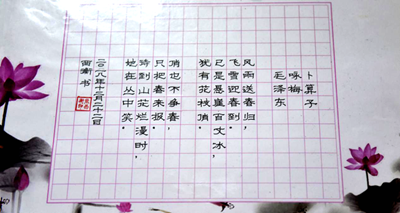 卜算子
咏梅
毛泽东
风雨送春归，
飞雪迎春到。
已是悬崖百丈冰，
犹有花枝俏。
俏也不争春，
只把春来报。
待到山花烂漫时，
她在丛中笑。
二〇一八年十二月二十二日
书